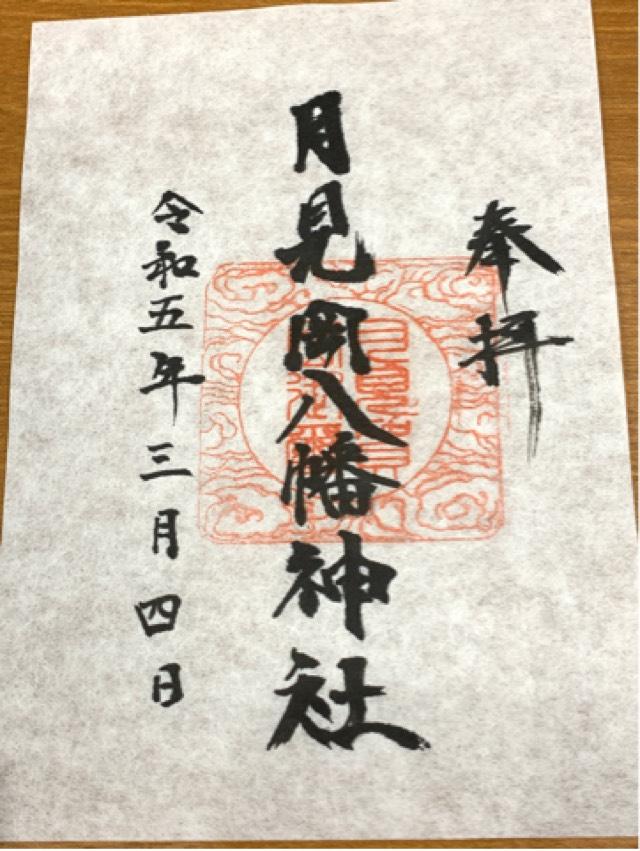 奉拝
月見岡八幡神社
令和五年三月四日